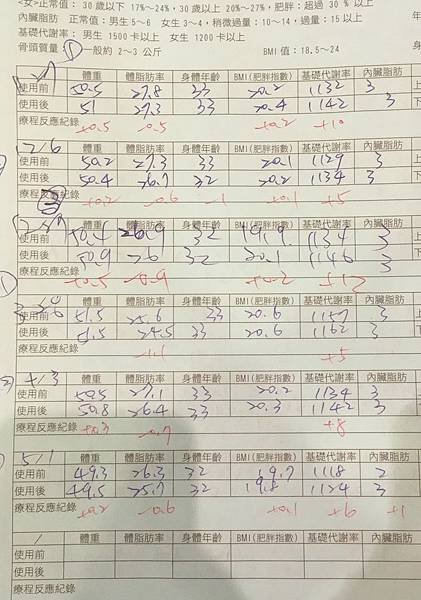 <女>正常值： 30 歲以下 17%～24%，30 歲以上 20%～27%，肥胖：超過 30 % 以上
內臟脂肪 正常值：男生 5～6 女生 3～4，稍微過量：10～14，過量：15 以上
基礎代謝率： 男生 1500 卡以上 / 女生 1200 卡以上
骨頭質量 一般約 2~3 公斤 BMI 值：18.5~24
體重 體脂肪率 身體年齡 BMI(肥胖指數) 基礎代謝率 內臟脂肪
使用前 50.5 27.8 33 20.2 1132 3
使用後 51 27.3 33 20.4 1142 3
療程反應紀錄 +0.5 -0.5 +0.2 +10
體重 體脂肪率 身體年齡 BMI(肥胖指數) 基礎代謝率 內臟脂肪
使用前 50.2 27.3 33 20.1 1129 3
使用後 50.4 26.7 32 20.2 1134 3
療程反應紀錄 +0.2 -0.6 -1 +0.1 +5
體重 體脂肪率 身體年齡 BMI(肥胖指數) 基礎代謝率 內臟脂肪
使用前 50.4 26.9 32 19.9 1134 3
使用後 50.9 26 32 20.1 1146 3
療程反應紀錄 +0.5 -0.9 +0.2 +12
體重 體脂肪率 身體年齡 BMI(肥胖指數) 基礎代謝率 內臟脂肪
使用前 51.5 25.6 33 20.6 1157 3
使用後 51.5 24.5 33 20.6 1162 3
療程反應紀錄 -1.1 +5
4/3 體重 體脂肪率 身體年齡 BMI(肥胖指數) 基礎代謝率 內臟脂肪
使用前 50.5 27.1 33 20.2 1134 3
使用後 50.8 26.4 33 20.3 1142 3
療程反應紀錄 +0.3 -0.7 +8
5/1 體重 體脂肪率 身體年齡 BMI(肥胖指數) 基礎代謝率 內臟脂肪
使用前 49.3 26.3 32 19.7 1118 2
使用後 49.5 25.7 32 19.8 1124 3
療程反應紀錄 +0.2 -0.6 +0.1 +6 +1
/ 體重 體脂肪率 身體年齡 BMI(肥胖指數) 基礎代謝率 內臟脂肪
使用前
使用後
療程反應紀錄